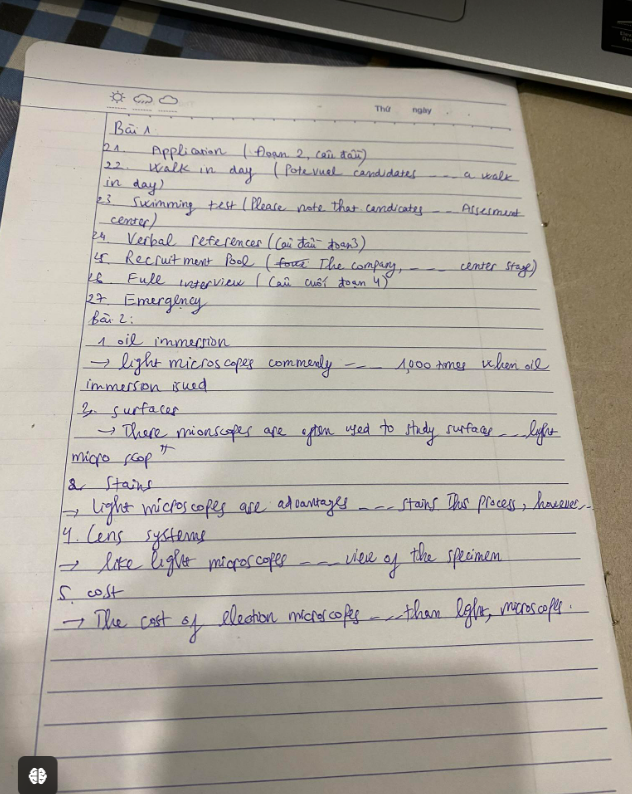 Thứ ngày
Bài 1
21. Application (Đoạn 2, câu đầu)
22. Walk in day (Potevuel candidates --- a walk
in day)
23. Swimming test (Please note that candicates --- Assesment
center)
24. Verbal references (Câu đầu đoạn 3)
25. Recruitment Pool ( The company, --- center stage)
26. Full interview (Câu cuối đoạn 4)
27. Emergency
Bài 2:
1 oil immersion
→ light microscopes commenly --- 1,000 times when oil
immersion is used
3. surfaces
→ These mionscopes are often used to study surfaces --- light
micro scop
2. Stains
→ Light microscopes are advantages --- stains This process, however, -
4. Lens systems
→ like light microscopes --- view of the specimen
5. cost
→ The cost of electron microscopes --- than light, microscopes.